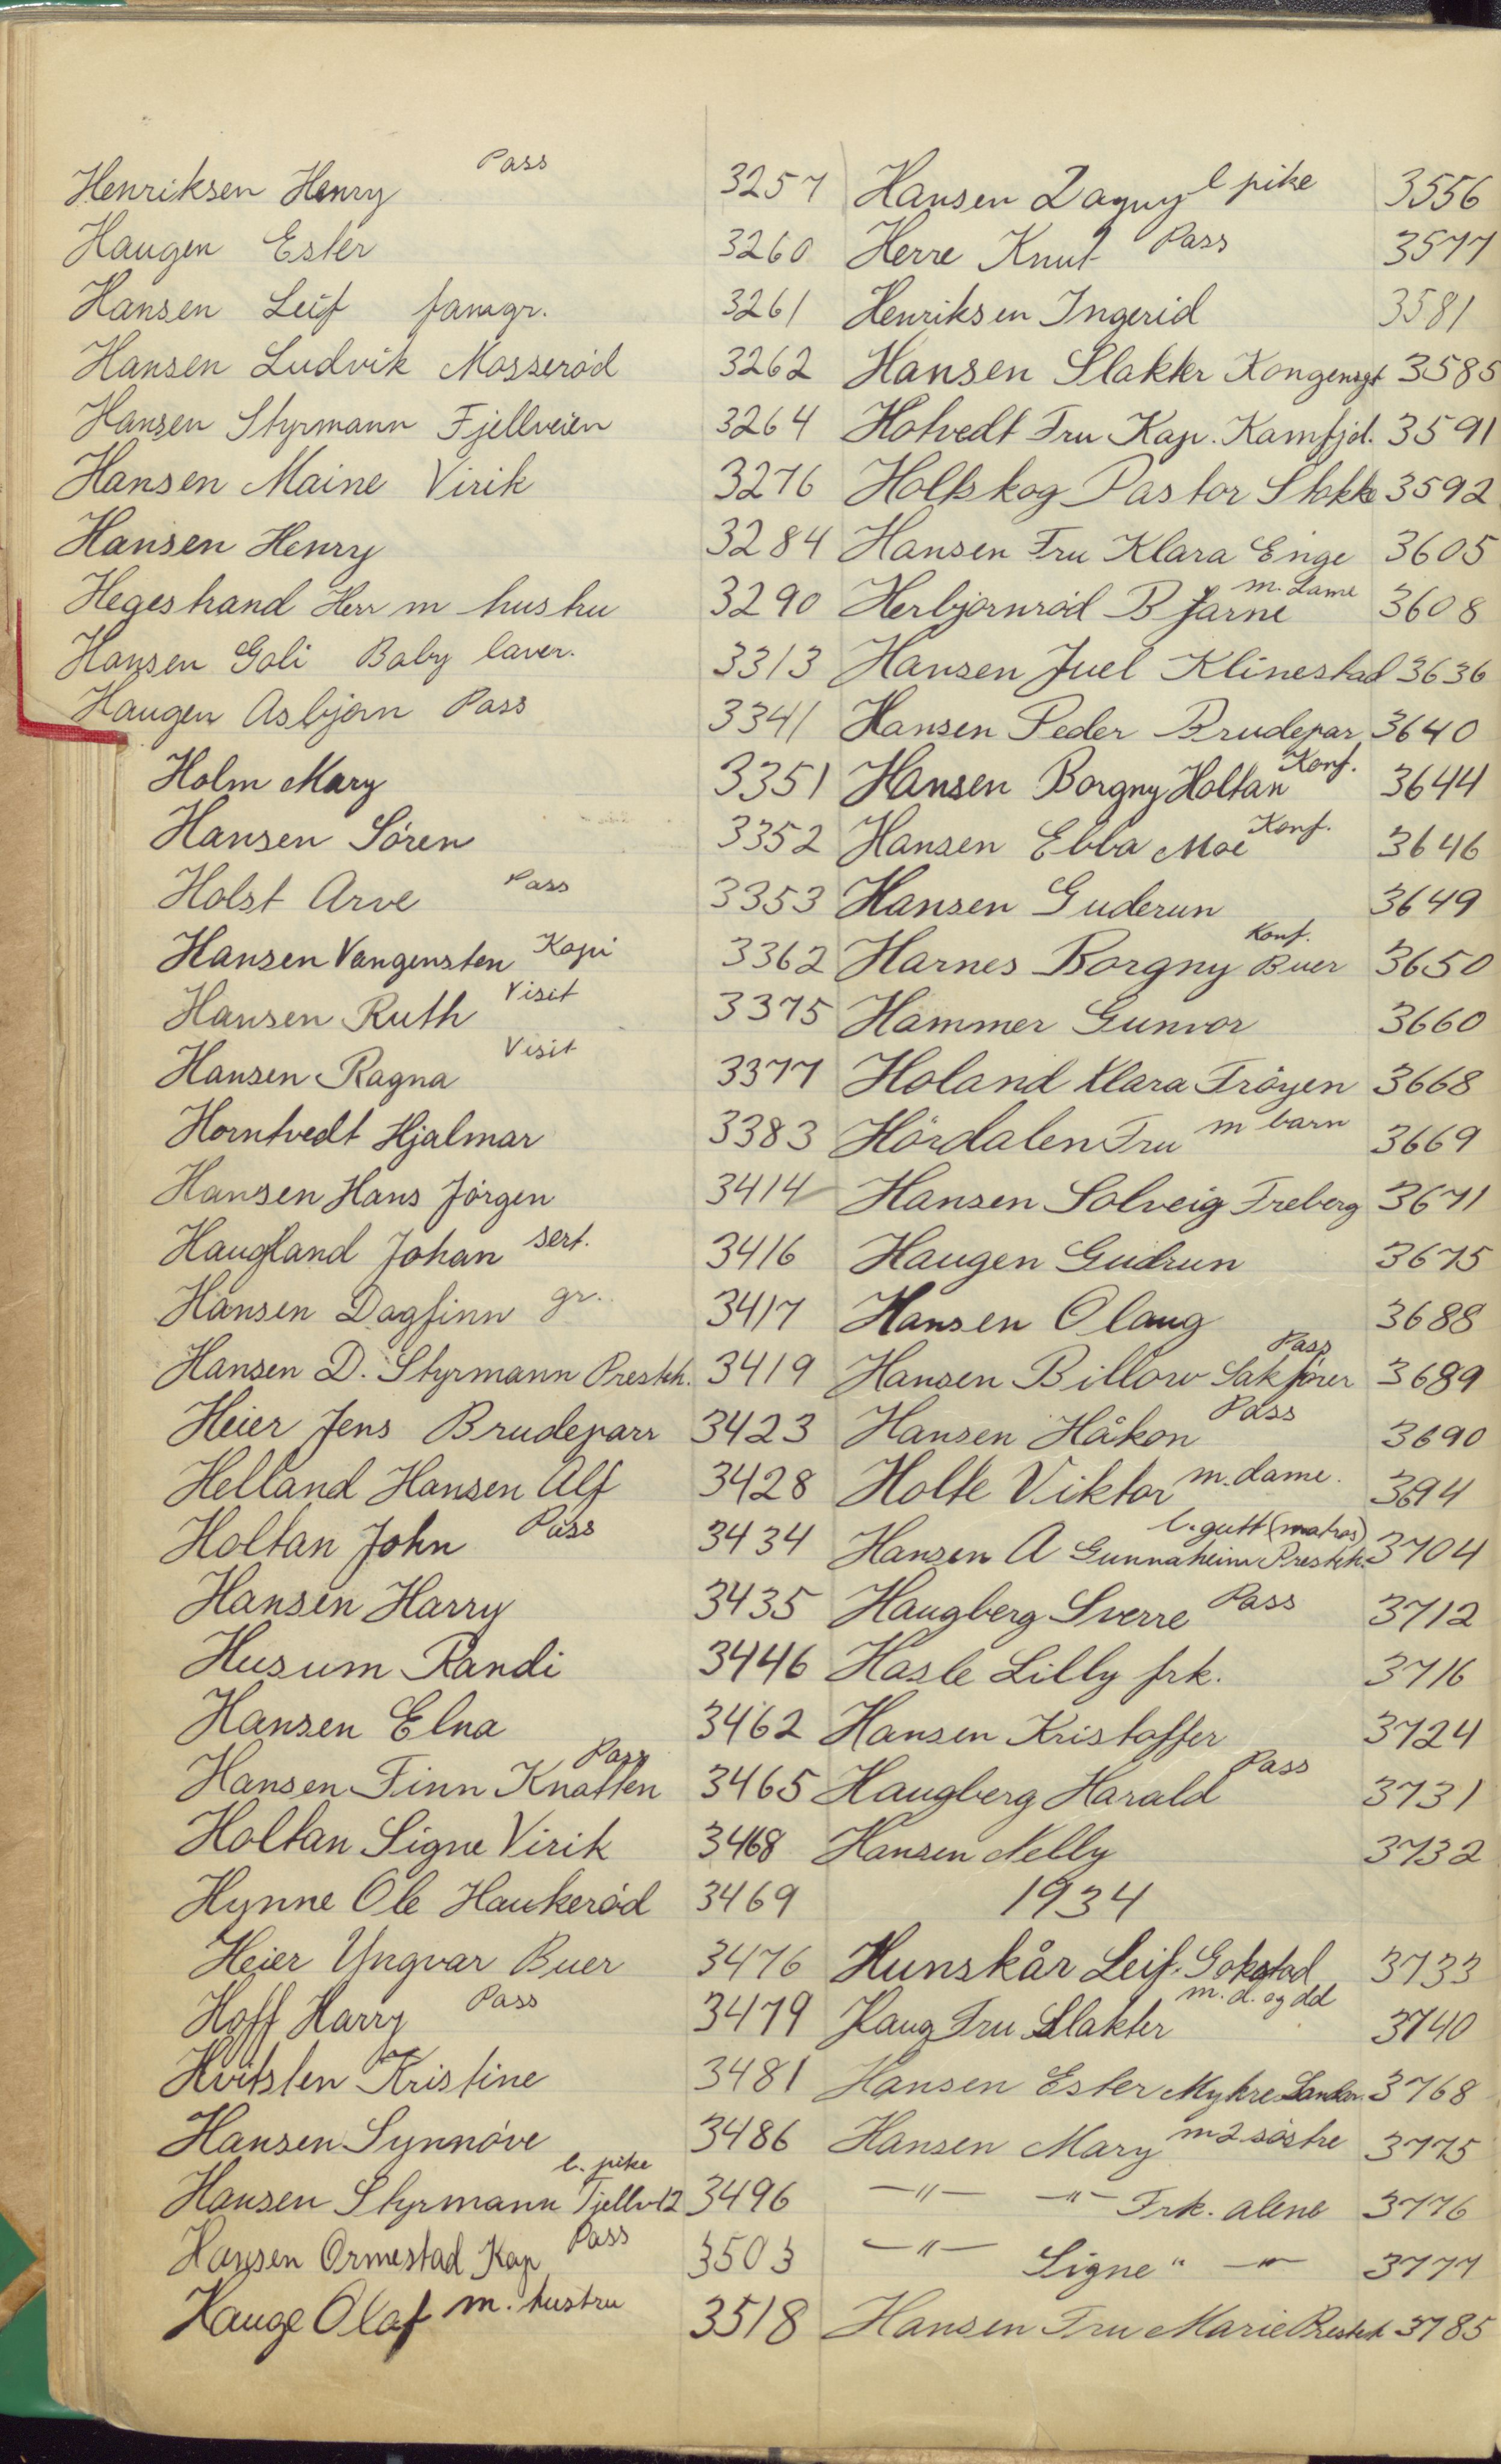 Henriksen Henry Pass 3257
Haugen Ester 3260
Hansen Leif famgr. 3261
Hansen Ludvik Mosserød 3262
Hansen Styrmann Fjellveien 3264
Hansen Maine Virik 3276
Hansen Henry 3284
Hegestrand Herr m hustru 3290
Hansen Goli Baby laver. 3313
Haugen Asbjørn Pass 3341
Holm Mary 3351
Hansen Søren 3352
Holst Arve Pass 3353
Hansen Vangensten Kopi 3362
Hansen Ruth Visit 3375
Hansen Ragna Visit 3377
Horntvedt Hjalmar 3383
Hansen Hans Jørgen 3414
Haugland Johan sert. 3416
Hansen Dagfinn gr. 3417
Hansen D. Styrmann Presteh. 3419
Heier Jens Brudeparr 3423
Helland Hansen Alf 3428
Holtan John Pass 3434
Hansen Harry 3435
Husum Randi 3446
Hansen Elna 3462
Hansen Finn Knatten Pass 3465
Holtan Signe Virik 3468
Hynne Ole Haukerød 3469
Heier Yngvar Buer 3476
Hoff Harry Pass 3479
Hvitsten Kristine 3481
Hansen Synnøve 3486
Hansen Styrmann Fjellv 12 l. pike 3496
Hansen Ormestad Kap Pass 3503
Hauge Olaf m. hustru 3518
Hansen Dagny l pike 3556
Herre Knut Pass 3577
Henriksen Ingerid 3581
Hansen Slakter Kongensgt 3585
Hotvedt Fru Kap. Kamfjd. 3591
Holtskog Pastor Stokke 3592
Hansen Fru Klara Enge 3605
Herbjørnrød Bjarne m. dame 3608
Hansen Juel Klinestad 3636
Hansen Peder Brudepar 3640
Hansen Borgny Holtan Konf. 3644
Hansen Ebba Moe Konf. 3646
Hansen Guderun 3649
Harnes Borgny Buer Konf. 3650
Hammer Gunvor 3660
Holand Klara Frøyen 3668
Hørdalen Fru m barn 3669
Hansen Solveig Freberg 3671
Haugen Gudrun 3675
Hansen Olaug 3688
Hansen Billow Sakfører Pass 3689
Hansen Håkon Pass 3690
Holte Viktor m. dame. 3694
Hansen A Gunnaheim Presteh. l. gutt (matros) 3704
Haugberg Sverre Pass 3712
Hasle Lilly frk. 3716
Hansen Kristoffer 3724
Haugberg Harald Pass 3731
Hansen Nelly 3732
1934
Hunskår Leif. Gokstad 3733
Haug Fru Slakter m. d. og dd 3740
Hansen Ester Mykre 3768
Hansen Mary m 2 søstre 3775
—"— —"— Frk. alene 3776
—"— Signe " —"— 3777
Hansen Fru Marie Presteh 3785